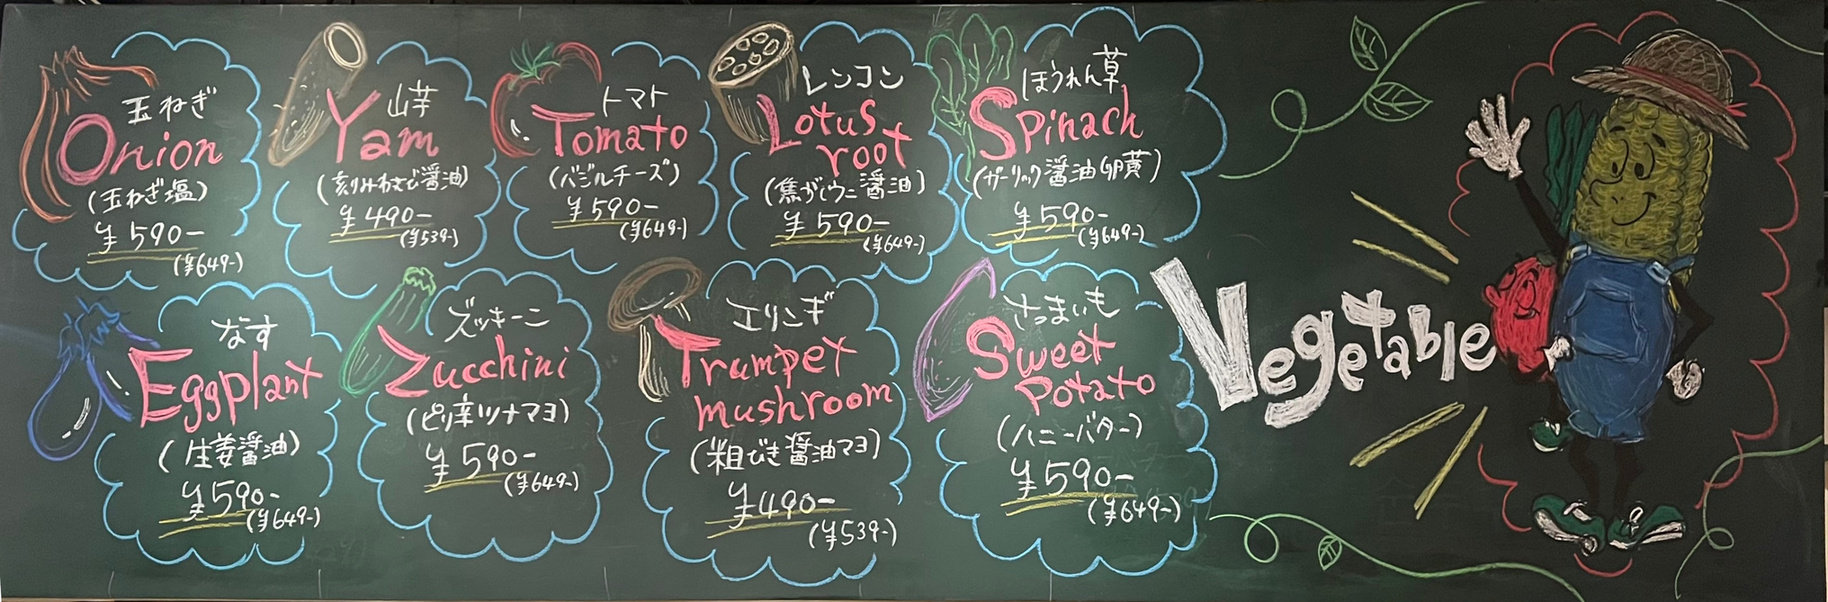 玉ねぎ
Onion
(玉ねぎ塩)
¥590-
(¥649-)
山芋
Yam
(刻みわさび醤油)
¥490-
(¥539-)
トマト
Tomato
(バジルチーズ)
¥590-
(¥649-)
レンコン
Lotus
root
(焦がしウニ醤油)
¥590-
(¥649-)
ほうれん草
Spinach
(ガーリック醤油卵黄)
¥590-
(¥649-)
なす
Eggplant
(生姜醤油)
¥590-
(¥649-)
ズッキーニ
Zucchini
(ピリ辛ツナマヨ)
¥590-
(¥649-)
エリンギ
Trumpet
mushroom
(粗びき醤油マヨ)
¥490-
(¥539-)
さつまいも
Sweet
Potato
(ハニーバター)
¥590-
(¥649-)
Vegetable